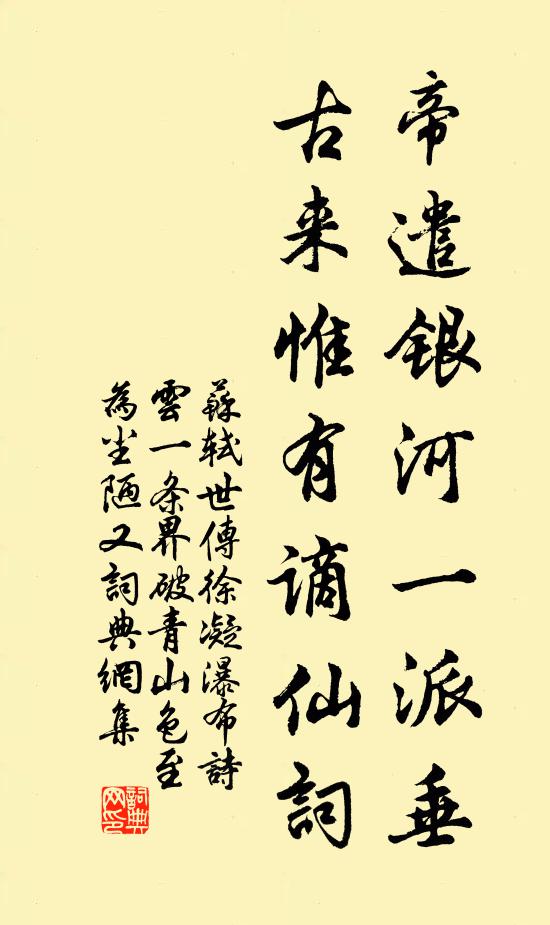 帝遣银河一派垂
古来惟有谪仙词
蘇軾世傳徐凝瀑布詩
雲一条界破青山色至
為尘陋又詞典網集
詞典网印